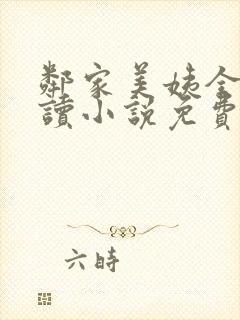 鄰家美姨全
讀小說免費
六時